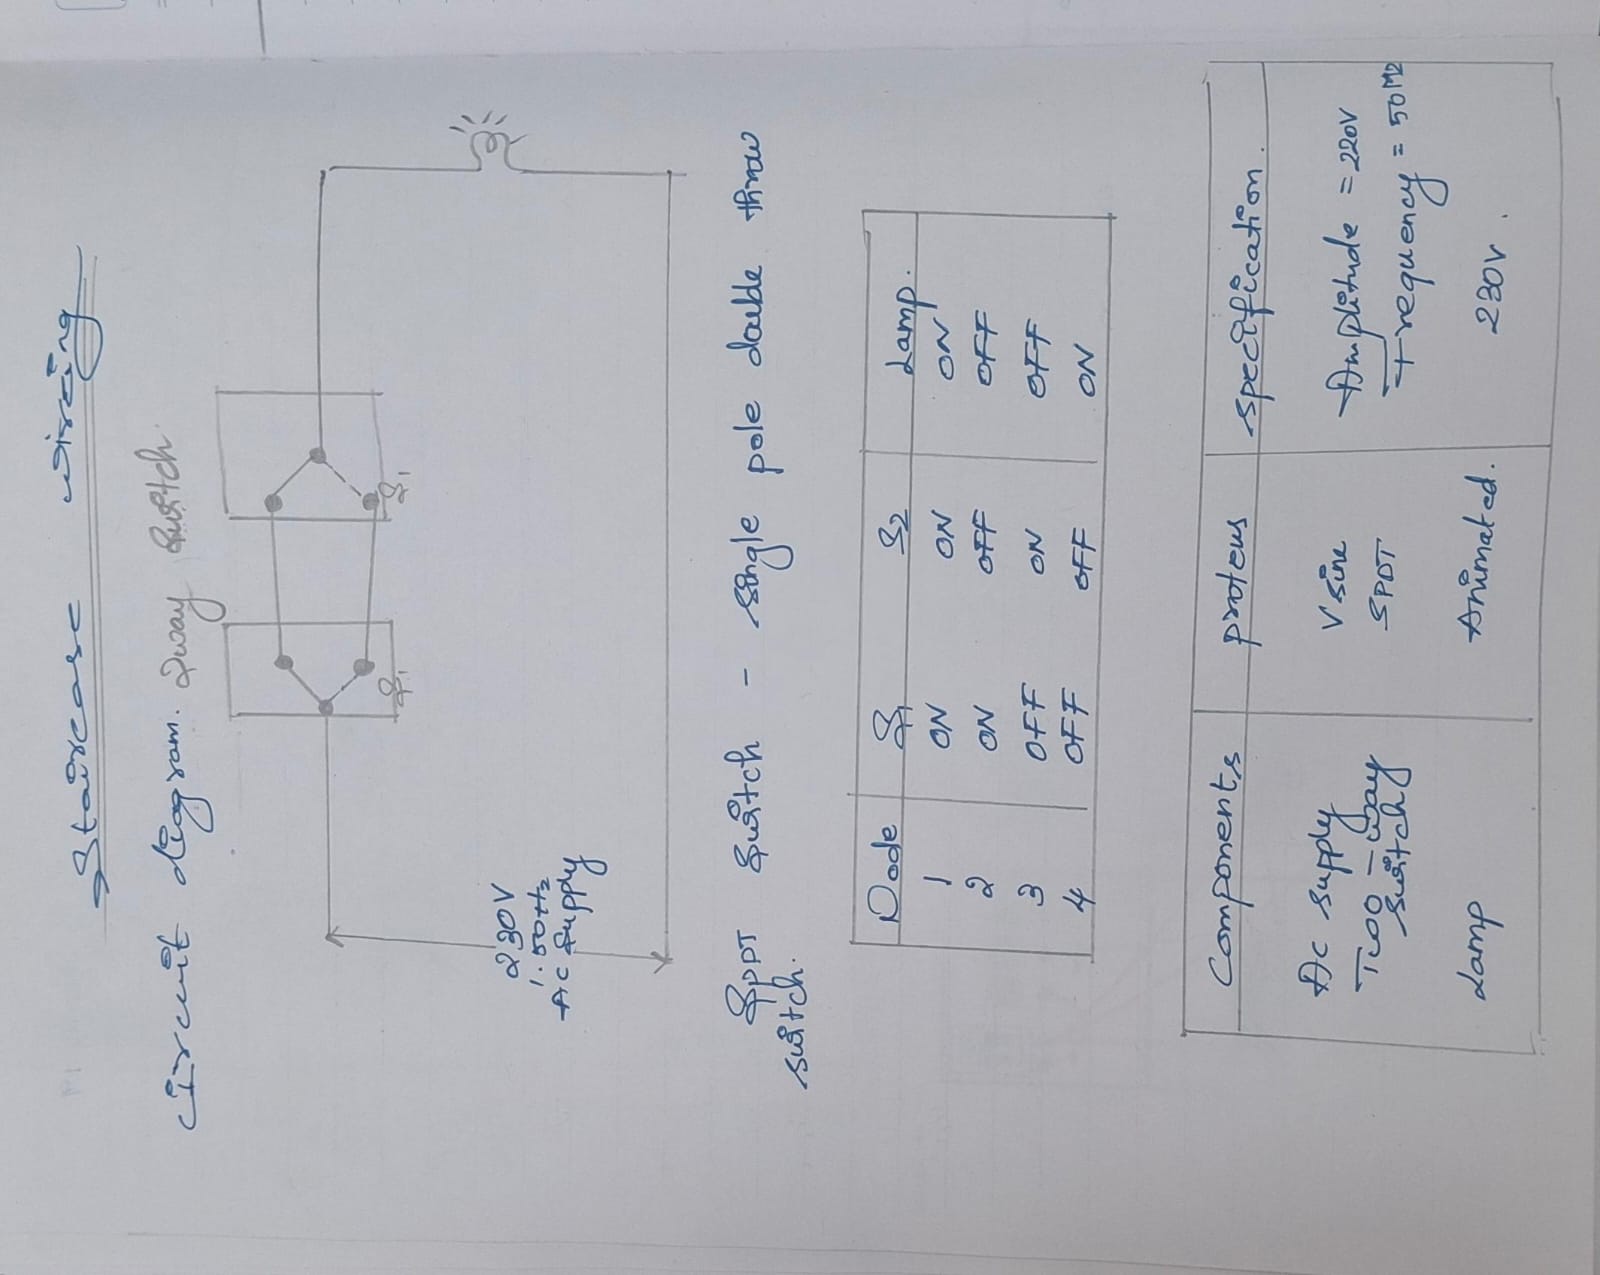 Staircase wiring
circuit diagram. 2way switch.
S1
S1
230V
1. 50Hz
AC Supply
SPDT switch - single pole double throw
switch.
Node S1 S2 Lamp.
1 ON ON ON
2 ON OFF OFF
3 OFF ON OFF
4 OFF OFF ON
Components proteus specification.
AC supply Vsine Amplitude = 220V
Two-way SPDT Frequency = 50Hz
switch
Lamp Animated. 230V.